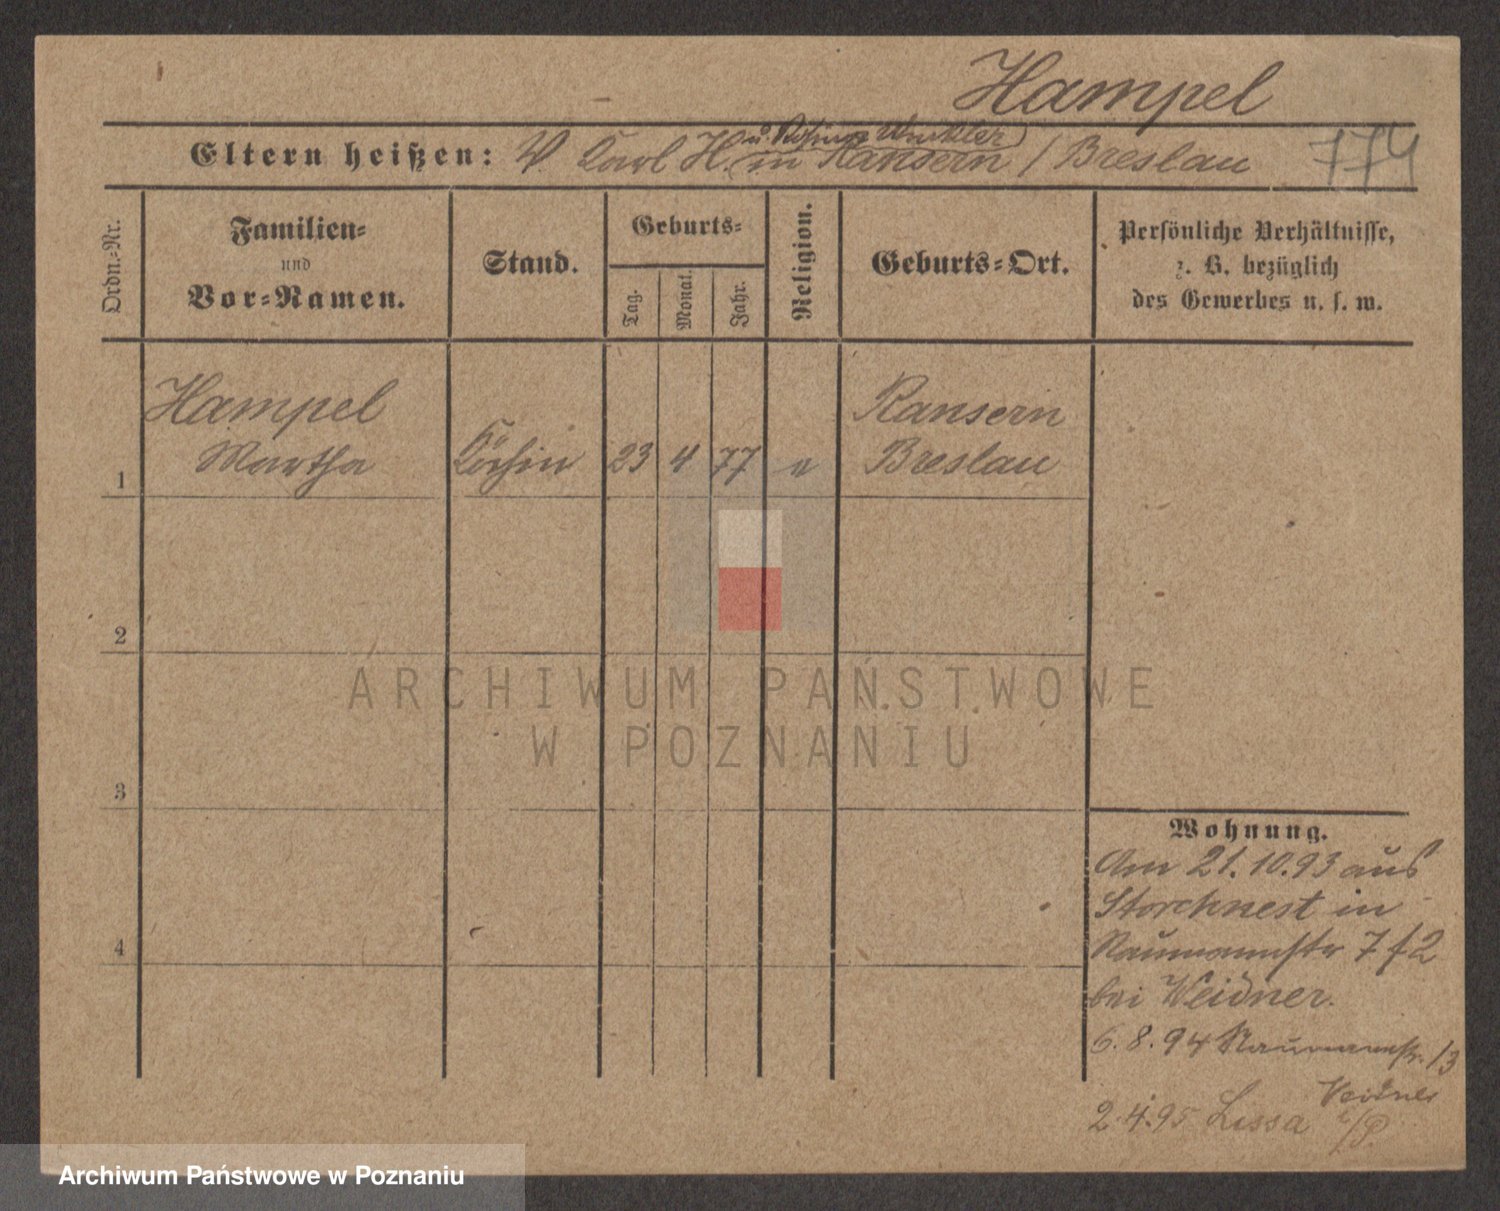 Hampel
u. Rosina Winkler
Eltern heißen: V. Karl H. in Ransern / Breslau
774
Ordn.-Nr.
Familien-
und
Vor-Namen.
Stand.
Geburts-
Tag.
Monat.
Jahr.
Religion.
Geburts-Ort.
Persönliche Verhältnisse,
z. B. bezüglich
des Gewerbes u. s. w.
1
Hampel
Martha
Köchin
23
4
77
e
Ransern
Breslau
2
3
4
Wohnung.
Am 21. 10. 93 aus
Storchnest in
Naumannstr 7 f 2
bei Weidner.
6. 8. 94 Naumannstr. 13
Weidner
2. 4. 95 Lissa i/P.
ARCHIWUM PAŃSTWOWE
W POZNANIU
Archiwum Państwowe w Poznaniu